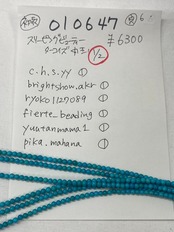 010647
スリーピングビューティー ¥6300
ターコイズ
1/2
c.h.s.yy ①
brightshow.akr ①
ryoko1127089 ①
fierte_beading ①
yuutanmama1 ①
pika.mahana ①